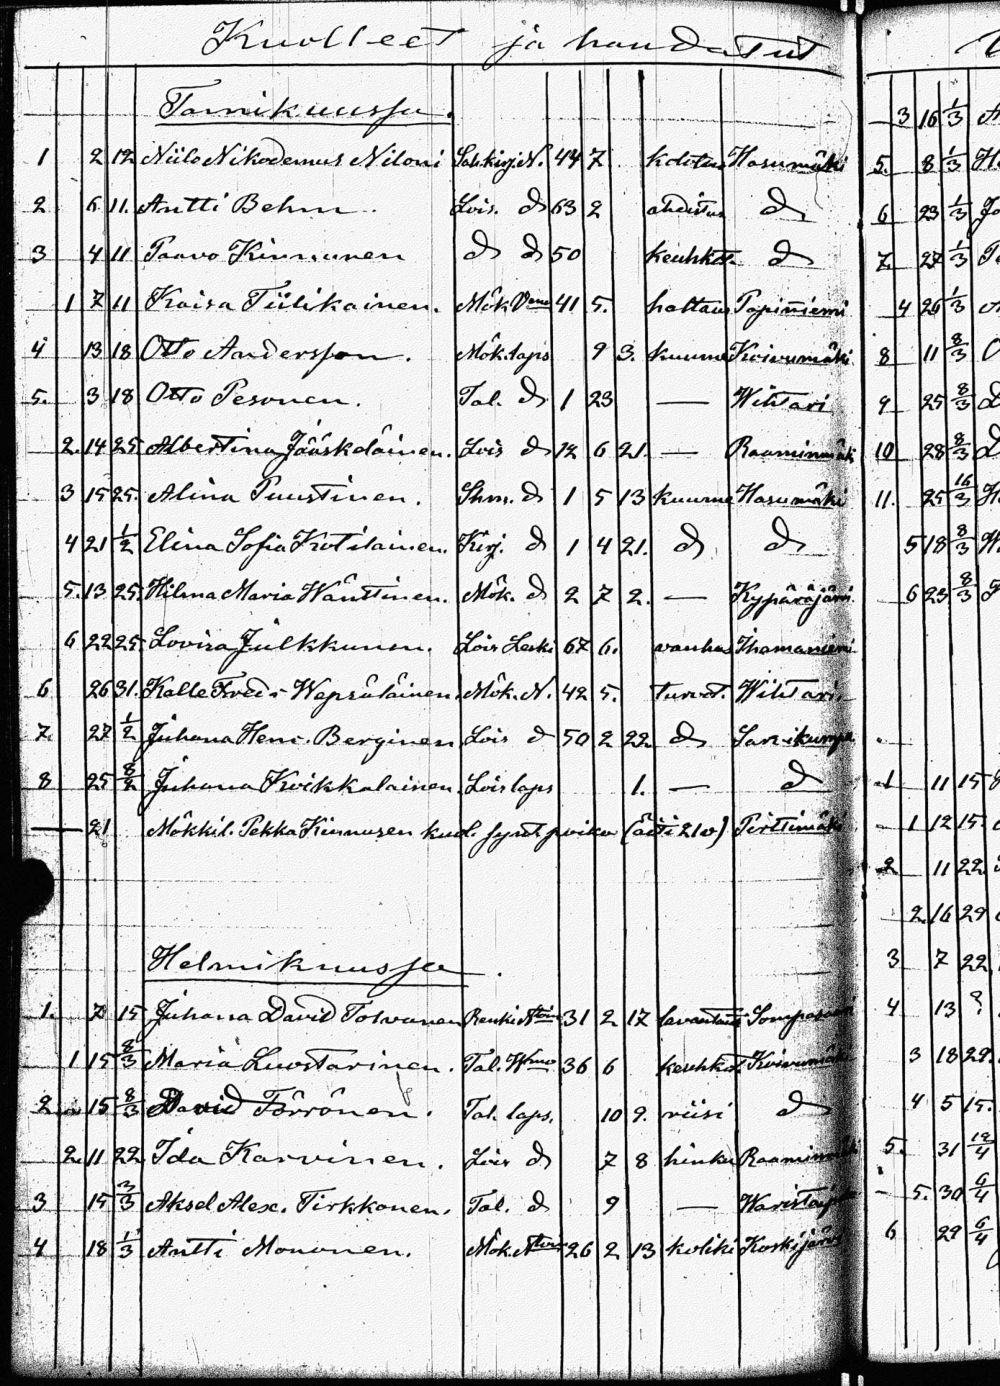 Kuolleet ja haudatut
Tamikuussa.
1 2 12 Niilo Nikodemus Niloni Lah.kirj. N. 44 7 kolotus Hasumäki
2 6 11. Antti Behm. Lois. d 63 2 ahdistus d
3 4 11 Paavo Kinnunen d d 50 keuhkot. d
1 7 11 Kaisa Tiilikainen. Mök. 41 5. halvaus Papinniemi
4 13 18 Otto Andersson. Mök.laps 9 3. kuume Koivumäki
5. 3 18 Otto Pesonen. Tal. d 1 23 — Wihtari
2. 14 25 Albertina Jääskeläinen. Lois d 12 6 21. — Raaminmäk
3 15 25. Alina Puustinen. d 1 5 13 kuume Hasumäki
4 21 1/2 Elina Sofia Kotilainen. Kirj. d 1 4 21. d d
5. 13 25. Hilma Maria Wänttinen. Mök. d 2 7 2. — Kypäräjärvi
6 22 25. Lovisa Julkkunen. Lois Leski 67 6. vanhus Ihamaniemi
6 26 31. Kalle Fredr Wepsäläinen. Mök. N. 42 5. turvot. Wihtari
7. 27 1/2 Juhana Henr. Berginen Lois d 50 2 22. d Sarvikumpu
8 25 8/2 Juhana Koikkalainen. Lois laps 1. — d
— 21 Mökkil. Pekka Kinnusen kuol. synt. poika (Äiti 21 v) Perttimäki
Helmikuussa.
1. 7 15 Juhana David Tolvanen Renki 31 2 17 lavantauti
1 15 8/3 Maria Luostarinen. Tal. 36 6 keuhkot. Koivumäki
2 15 8/3 David Törrönen. Tal. laps. 10 9. riisi d
2. 11 22 Ida Karvinen. Lois d 7 8 hinku Raaminmäki
3 15 3/3 Aksel Alex. Tirkkonen. Tal. d 9 —
4 18 1/3 Antti Mononen. Mök. 26 2 13 koliki Koskijärvi
3 16 1/3
5. 8 1/3
6 23 1/3
7. 27 1/3
4 26 1/3
8 11 8/3
9 25 8/3
10 28 8/3
11. 25 16/3
5 18 8/3
6 23 8/3
1 11 15
1 12 15.
2 11 22
2. 16 29
3 7 22
4 13 ?
3 18 29.
4 5 15.
5. 31 12/4
5. 30 6/4
6 29 6/4